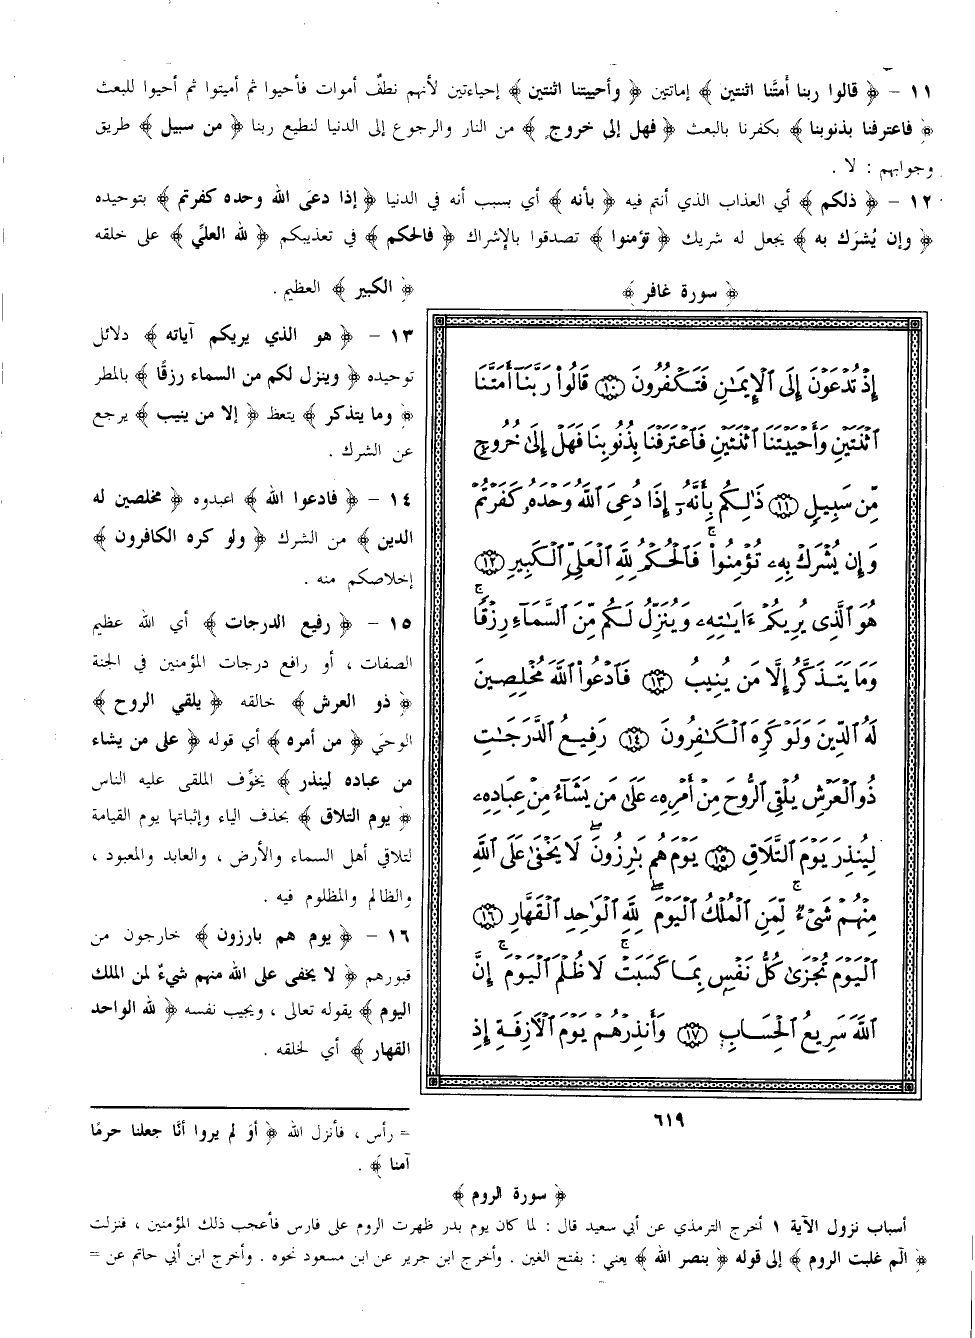 ١١ - ﴿ قالوا ربنا أمتَّنا اثنتين ﴾ إماتتين ﴿ وأحييتنا اثنتين ﴾ إحياءتين لأنهم نطفٌ أموات فأحيوا ثم أميتوا ثم أحيوا للبعث
﴿ فاعترفنا بذنوبنا ﴾ بكفرنا بالبعث ﴿ فهل إلى خروج ﴾ من النار والرجوع إلى الدنيا لنطيع ربنا ﴿ من سبيل ﴾ طريق
وجوابهم : لا .
١٢ - ﴿ ذلكم ﴾ أي العذاب الذي أنتم فيه ﴿ بأنه ﴾ أي بسبب أنه في الدنيا ﴿ إذا دعيَ الله وحده كفرتم ﴾ بتوحيده
﴿ وإن يُشرَك به ﴾ يجعل له شريك ﴿ تؤمنوا ﴾ تصدقوا بالإشراك ﴿ فالحكم ﴾ في تعذيبكم ﴿ لله العليِّ ﴾ على خلقه
﴿ الكبير ﴾ العظيم .
١٣ - ﴿ هو الذي يريكم آياته ﴾ دلائل
توحيده ﴿ وينزل لكم من السماء رزقًا ﴾ بالمطر
﴿ وما يتذكر ﴾ يتعظ ﴿ إلا من ينيب ﴾ يرجع
عن الشرك .
١٤ - ﴿ فادعوا الله ﴾ اعبدوه ﴿ مخلصين له
الدين ﴾ من الشرك ﴿ ولو كره الكافرون ﴾
إخلاصكم منه .
١٥ - ﴿ رفيع الدرجات ﴾ أي الله عظيم
الصفات ، أو رافع درجات المؤمنين في الجنة
﴿ ذو العرش ﴾ خالقه ﴿ يلقي الروح ﴾
الوحيَ ﴿ من أمره ﴾ أي قوله ﴿ على من يشاء
من عباده لينذر ﴾ يخوِّف الملقى عليه الناس
﴿ يوم التلاق ﴾ بحذف الياء وإثباتها يوم القيامة
لتلاقي أهل السماء والأرض ، والعابد والمعبود ،
والظالم والمظلوم فيه .
١٦ - ﴿ يوم هم بارزون ﴾ خارجون من
قبورهم ﴿ لا يخفى على الله منهم شيءٌ لمن الملك
اليوم ﴾ يقوله تعالى ، ويجيب نفسه ﴿ لله الواحد
القهار ﴾ أي لخلقه .
﴿ سورة غافر ﴾
إِذْ تُدْعَوْنَ إِلَى ٱلْإِيمَٰنِ فَتَكْفُرُونَ ١٠ قَالُوا۟ رَبَّنَآ أَمَتَّنَا
ٱثْنَتَيْنِ وَأَحْيَيْتَنَا ٱثْنَتَيْنِ فَٱعْتَرَفْنَا بِذُنُوبِنَا فَهَلْ إِلَىٰ خُرُوجٍ
مِّن سَبِيلٍ ١١ ذَٰلِكُم بِأَنَّهُۥٓ إِذَا دُعِىَ ٱللَّهُ وَحْدَهُۥ كَفَرْتُمْ
وَإِن يُشْرَكْ بِهِۦ تُؤْمِنُوا۟ ۚ فَٱلْحُكْمُ لِلَّهِ ٱلْعَلِىِّ ٱلْكَبِيرِ ١٢
هُوَ ٱلَّذِى يُرِيكُمْ ءَايَٰتِهِۦ وَيُنَزِّلُ لَكُم مِّنَ ٱلسَّمَآءِ رِزْقًا ۚ
وَمَا يَتَذَكَّرُ إِلَّا مَن يُنِيبُ ١٣ فَٱدْعُوا۟ ٱللَّهَ مُخْلِصِينَ
لَهُ ٱلدِّينَ وَلَوْ كَرِهَ ٱلْكَٰفِرُونَ ١٤ رَفِيعُ ٱلدَّرَجَٰتِ
ذُو ٱلْعَرْشِ يُلْقِى ٱلرُّوحَ مِنْ أَمْرِهِۦ عَلَىٰ مَن يَشَآءُ مِنْ عِبَادِهِۦ
لِيُنذِرَ يَوْمَ ٱلتَّلَاقِ ١٥ يَوْمَ هُم بَٰرِزُونَ ۖ لَا يَخْفَىٰ عَلَى ٱللَّهِ
مِنْهُمْ شَىْءٌ ۚ لِّمَنِ ٱلْمُلْكُ ٱلْيَوْمَ ۖ لِلَّهِ ٱلْوَٰحِدِ ٱلْقَهَّارِ ١٦
ٱلْيَوْمَ تُجْزَىٰ كُلُّ نَفْسٍۭ بِمَا كَسَبَتْ ۚ لَا ظُلْمَ ٱلْيَوْمَ ۚ إِنَّ
ٱللَّهَ سَرِيعُ ٱلْحِسَابِ ١٧ وَأَنذِرْهُمْ يَوْمَ ٱلْءَازِفَةِ إِذِ
٦١٩
= رأس ، فأنزل الله ﴿ أوَ لم يروا أنَّا جعلنا حرمًا
آمنا ﴾ .
﴿ سورة الروم ﴾
أسباب نزول الآية ١ أخرج الترمذي عن أبي سعيد قال : لما كان يوم بدر ظهرت الروم على فارس فأعجب ذلك المؤمنين ، فنزلت
﴿ الَم غلبت الروم ﴾ إلى قوله ﴿ بنصر الله ﴾ يعني : بفتح الغين . وأخرج ابن جرير عن ابن مسعود نحوه . وأخرج ابن أبي حاتم عن =